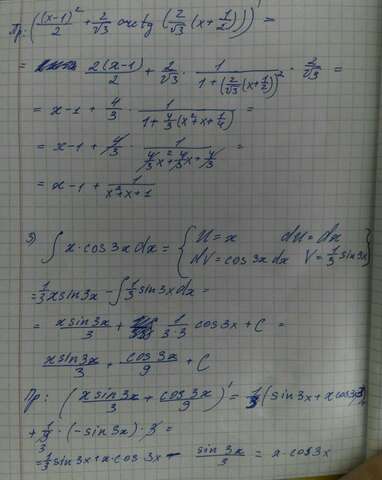 Пр: ((x-1)²/2 + 2/√3 arctg (2/√3 (x+1/2)))' =
= 2(x-1)/2 + 2/√3 · 1/(1+(2/√3(x+1/2))²) · 2/√3 =
= x-1 + 4/3 · 1/(1+4/3(x²+x+1/4)) =
= x-1 + 4/3 · 1/(4/3x²+4/3x+4/3) =
= x-1 + 1/(x²+x+1)
3) ∫ x·cos3x dx = { U=x dU=dx
dV=cos3x dx V=1/3 sin3x }
= 1/3 x sin3x - ∫ 1/3 sin3x dx =
= x sin3x/3 + 1/3·3 cos3x + C =
x sin3x/3 + cos3x/9 + C
Пр: (x sin3x/3 + cos3x/9)' = 1/3 (sin3x + x cos3x·3)
+ 1/9 · (-sin3x) · 3 =
= 1/3 sin3x + x·cos3x - sin3x/3 = x·cos3x